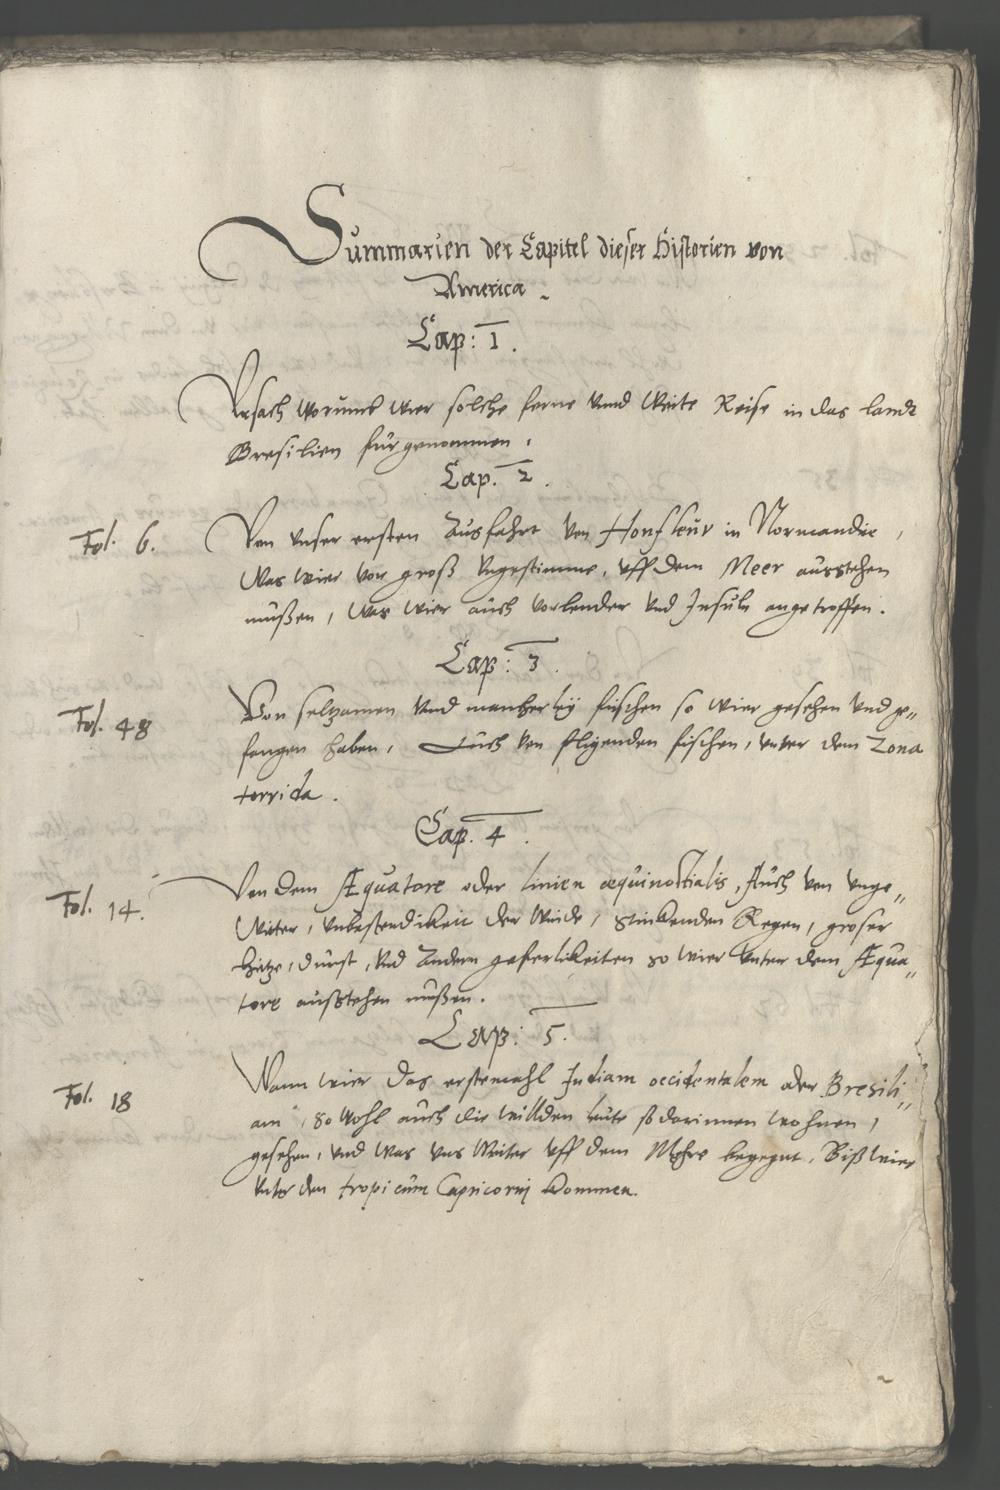 Summarien der Capitel dieser Historien von
America.
Cap: 1.
Ursach worumb wier solche ferne unnd weite Reise in das landt
Bresilien fürgenommen.
Cap. 2.
Fol. 6.
Von unser ersten Ausfahrt von Honfleur in Normandie,
was wier vor groß ungestimme, uff dem Meer ausstehen
müßen, was wier auch vor lender und Insuln angetroffen.
Cap: 3.
Fol. 48
Von selzamen unnd mancherley fischen so wier gesehen und ge„
fangen haben, Auch von fligenden fischen, unter dem Zona
torrida.
Cap. 4.
Fol. 14.
Von dem Æquatore oder linien æquinoctialis, Auch von unge„
witer, unbestendikeit der Winde, stinkenden Regen, groser
hitze, durst, und Andern geferlikeiten so wier unter dem Æqua„
tore ausstehen müßen.
Cap: 5.
Fol. 18
Wann wier das erstemahl Indiam occidentalem oder Bresili„
am, so wohl auch die willden leute so darinnen wohnen,
gesehen, und was uns weiter uff dem Mehre begegnt, Biß wier
unter den tropicum Capricorni kommen.